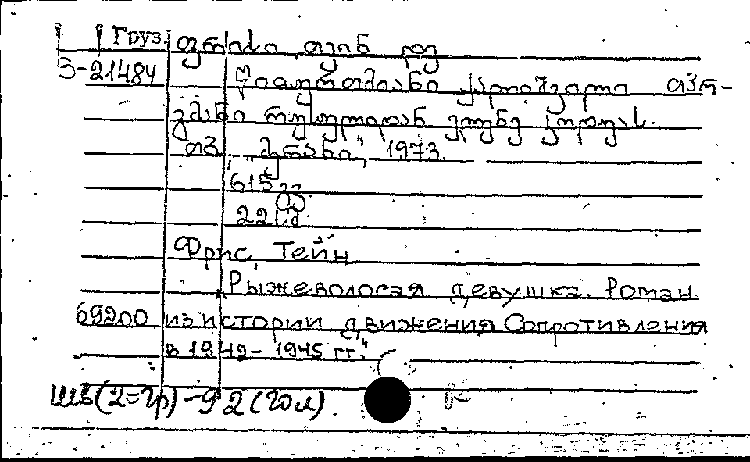 Груз. ფრისი თეინ დე
3-21484 წითურთმიანი ქალიშვილი თარ-
გმანი რუსულიდან
თბ. 1973.
615 გვ.
22 სმ.
Фрис, Тейн
Рыжеволосая девушка. Роман
69200 из истории движения Сопротивления
в 1942-1945 гг."
(2=Гр)-9 2 (Гол).